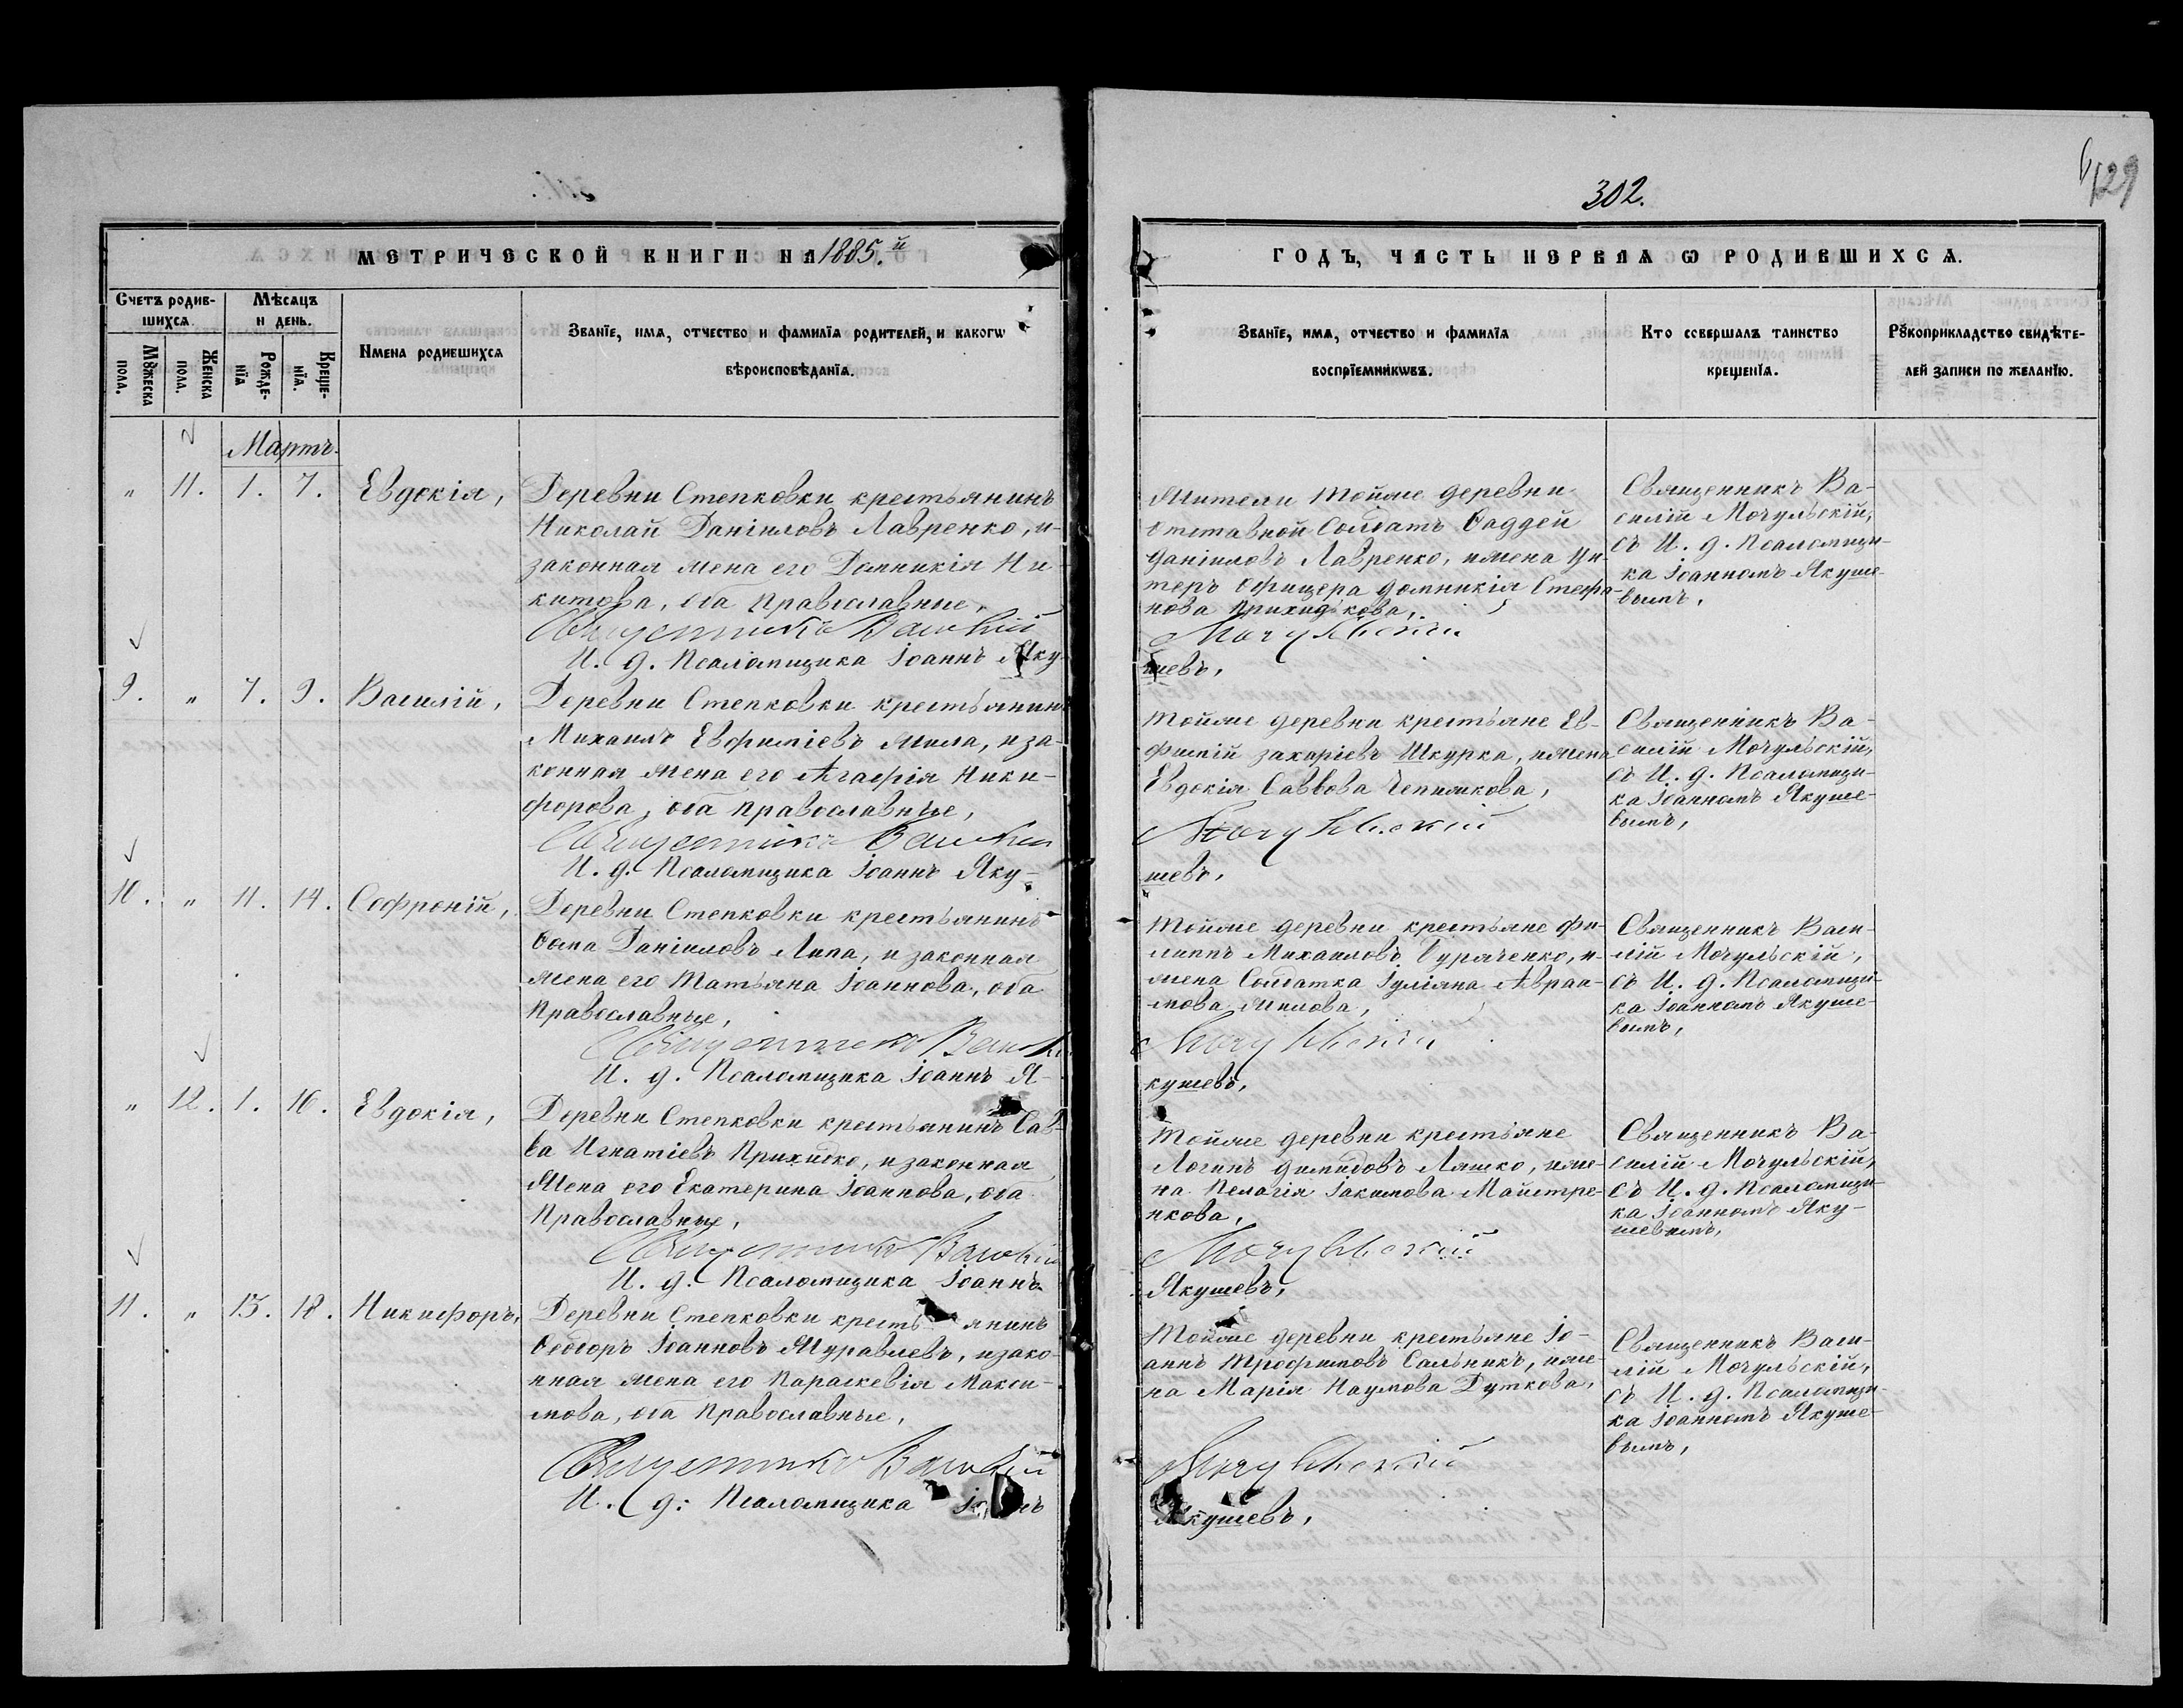 302.
129
МЕТРИЧЕСКОЙ КНИГИ НА 1885.й
ГОДЪ, ЧАСТЬ ПЕРВАЯ Ѡ РОДИВШИХСЯ.
Счетъ родив-
шихся.
Мѣсяцъ
и день.
Мꙋжеска
пола.
Женска
пола.
Рожде-
нїя
Креще-
нїя.
Имена родившихся
Званїе, имя, отчество и фамилїя родителей, и какогѡ
вѣроисповѣданїя.
Званїе, имя, отчество и фамилїя
воспрїемникѡвъ.
Кто совершалъ таинство
крещенїя.
Рꙋкоприкладство свидѣте-
лей записи по желанїю.
Мартъ.
" 11. 1. 7. Евдокія,
Деревни Степковки крестьянинъ
Николай Даніиловъ Лавренко, и
законная жена его Домникія Ни-
китова, оба Православные,
Священникъ Василій
И. д. Псаломщика Іоаннъ Яку-
Жители тойже деревни
отставной Солдатъ Фаддей
Даніиловъ Лавренко, и жена Ун-
теръ Офицера Домникія Стефа-
нова Приходькова,
Мочульскій
шевъ,
Священникъ Ва-
силій Мочульскій,
съ И. д. Псаломщи-
ка Іоанномъ Якуше-
вымъ,
9. " 7. 9. Василій,
Деревни Степковки крестьянинъ
Михаилъ Евфиміевъ Жила, и за-
конная жена его Агафія Ники-
форова, оба православные,
Священникъ Василій
И. д. Псаломщика Іоаннъ Яку-
Тойже деревни крестьяне Ев-
фимій Захаріевъ Шкурка, и жена
Евдокія Саввова Чепижкова,
Мочульскій
шевъ,
Священникъ Ва-
силій Мочульскій,
съ И. д. Псаломщи-
ка Іоанномъ Якуше-
вымъ,
10. " 11. 14. Софроній,
Деревни Степковки крестьянинъ
Фома Даніиловъ Липа, и законная
жена его Татьяна Іоаннова, оба
Православные,
Священникъ Василій
И. д. Псаломщика Іоаннъ Я-
Тойже деревни крестьяне Фи-
липпъ Михаиловъ Буряченко, и
жена Солдатка Іуліана Авраа-
мова Жилова,
Мочульскій
кушевъ,
Священникъ Васи-
лій Мочульскій,
съ И. д. Псаломщи-
ка Іоанномъ Якуше-
вымъ,
" 12. 1. 16. Евдокія,
Деревни Степковки крестьянинъ Сав-
ва Игнатіевъ Прихидко, и законная
Жена его Екатерина Іоаннова, оба
Православные,
Священникъ Василій
И. д. Псаломщика Іоаннъ
Тойже деревни крестьяне
Логинъ Димидовъ Ляшко, и же-
на Пелагія Іакимова Майстре-
нкова,
Мочульскій
Якушевъ,
Священникъ Ва-
силій Мочульскій,
съ И. д. Псаломщи-
ка Іоанномъ Яку-
шевымъ,
11. " 15. 18. Никифоръ,
Деревни Степковки крестьянинъ
Ѳеодоръ Іоанновъ Журавлевъ, и зако-
нная жена его Параскевія Макси-
мова, оба Православные,
Священникъ Василій
И. д. Псаломщика Іоаннъ
Тойже деревни крестьяне Іо-
аннъ Трофимовъ Сальникъ, и же-
на Марія Наумова Дуткова,
Мочульскій
Якушевъ,
Священникъ Васи-
лій Мочульскій,
съ И. д. Псаломщи-
ка Іоанномъ Якуше-
вымъ,